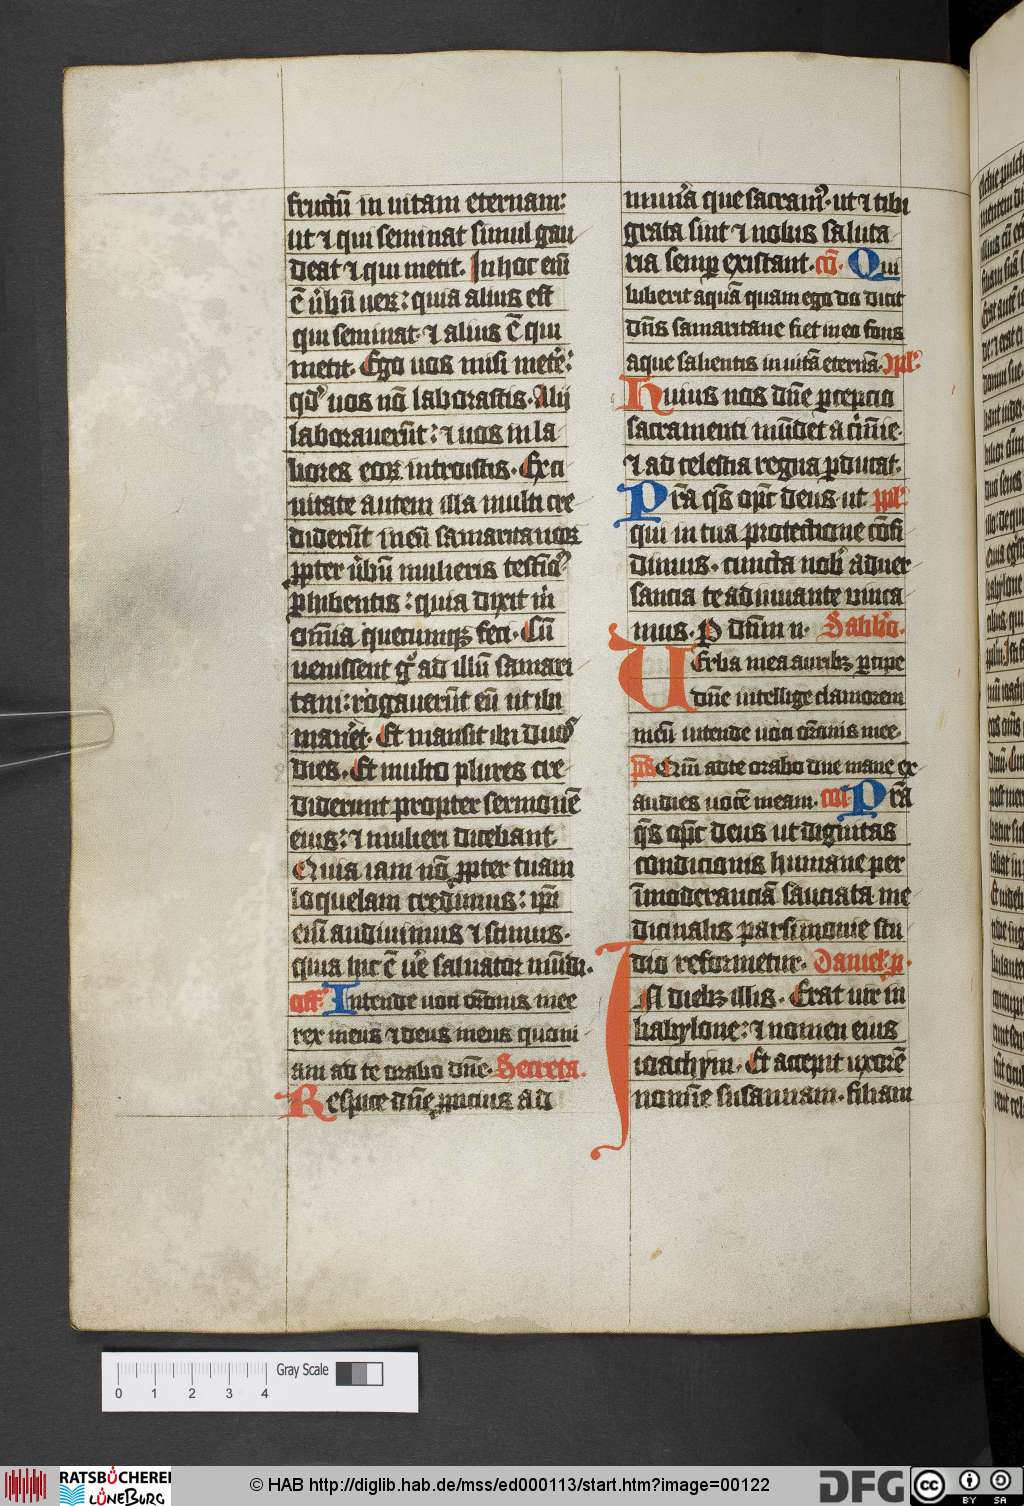 fructũ in uitam eternam:
ut ⁊ qui seminat simul gau
deat ⁊ qui metit. In hoc em̃
ẽ ũbũ uerꝝ: quia alius est
qui seminat ⁊ alius ẽ qui
metit. Ego uos misi metẽ:
qđ uos nõ laborastis. Alij
laborauerũt: ⁊ uos in la
bores eoꝝ introistis. Ex ci
uitate autem illa multi cre
diderũt in eũ samaritanoꝝ
ꝓpter ũbũ mulieris testiõ
ꝑhibentis: quia dixit m̃
omnia quecumqꝫ feci. Cũ
uenissent g̊ ad illũ samari
tani: rogauerũt eũ ut ibi
manẽt. Et mansit ibi duos
dies. Et multo plures cre
diderunt propter sermonẽ
eius: ⁊ mulieri dicebant.
Quia iam nõ ꝓpter tuam
loquelam credimus: ip̃i
eñ audiuimus ⁊ scimus.
quia hic ẽ ũe saluator mũdi.
off. Intende uoci orõnis mee
rex meus ⁊ deus meus quoni
am ad te orabo dñe. Secreta.
Respice dñe ꝓpicius ad
munãa que sacram᷒. ut ⁊ tibi
grata sint ⁊ nobis saluta
ria semꝑ existant. cõ. Qui
biberit aquã quam ego do dicit
dñs samaritane fiet in eo fons
aque salientis in uitã eternã. ꝯpl'.
Huius nos dñe ꝑcepcio
sacramenti mũdet a crimĩe.
⁊ ad celestia regna ꝑducat.
Prã q̃s op̃c deus ut ppl'.
qui in tua protectione cõfi
dimus. cuncta nob̃ aduer
sancia te adiuuante uinca
mus. P dñm n. Sabb̃o.
Uerba mea auribꝫ ꝑcipe
dñe intellige clamorem
meũ intende uoci orõnis mee.
p̃s Qm̃ ad te orabo dñe mane ex
audies uocẽ meam. coll. Prã
q̃s op̃c deus ut dignitas
condicionis humane per
ĩmoderanciã sauciata me
dicinalis parsimonie stu
dio reformetur. Daniel. p.
In diebꝫ illis. Erat uir in
babylone: ⁊ nomen eius
ioachym. Et accepit uxorẽ
nomĩe susannam. filiam
Gray Scale
0 1 2 3 4
RATSBÜCHEREI
LÜNEBURG
© HAB http://diglib.hab.de/mss/ed000113/start.htm?image=00122
DFG
cc BY SA